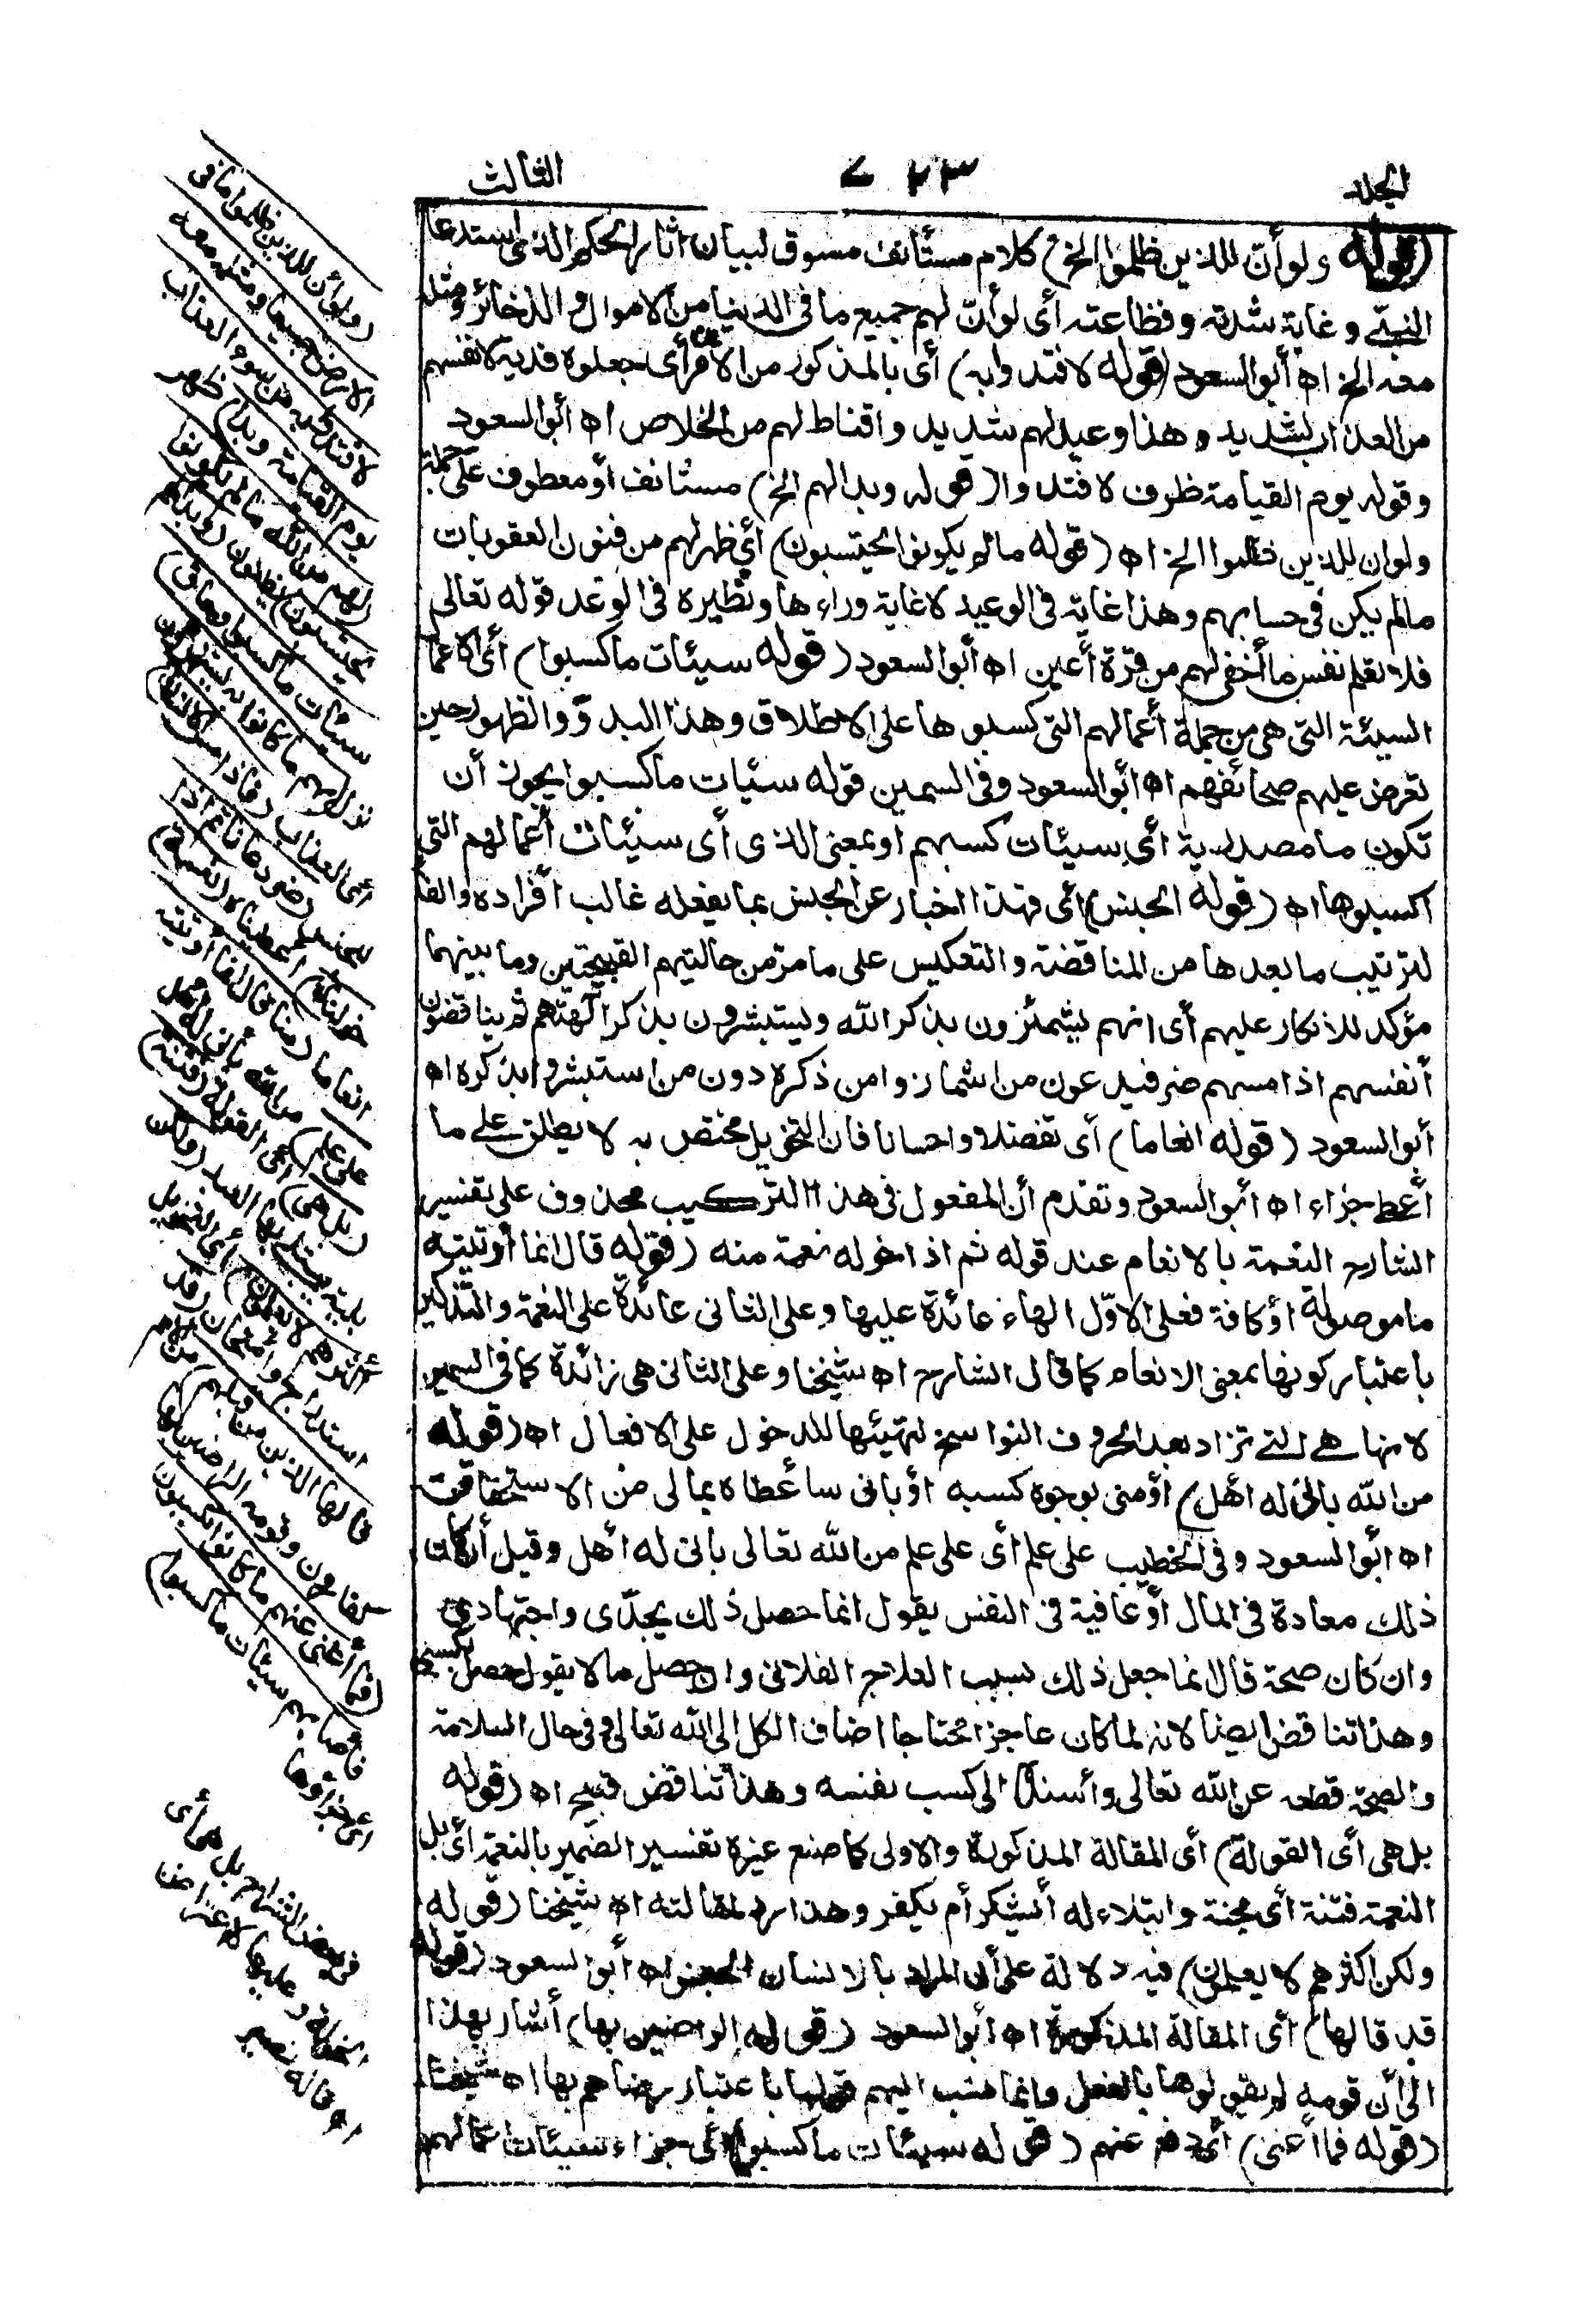 المجلد
٧٢٣
الثالث
(قوله ولو أن للذين ظلموا الخ) كلام مستأنف مسوق لبيان آثار الحكم الذى استدعاه
النبى وغاية شدته وفظاعته أى لو أن لهم جميع ما فى الدنيا من الاموال والذخائر ومثله
معه الخ اه أبو السعود (قوله لافتدوا به) أى بالمذكور من الامرين أى جعلوه فدية لانفسهم
من العذاب الشديد وهذا وعيد لهم شديد واقناط لهم من الخلاص اه أبو السعود
وقوله يوم القيامة ظرف لافتدوا (قوله وبدا لهم الخ) مستأنف أو معطوف على جملة
ولو أن للذين ظلموا الخ اه (قوله ما لم يكونوا يحتسبون) أى ظهر لهم من فنون العقوبات
ما لم يكن فى حسابهم وهذا غاية فى الوعيد لا غاية وراءها ونظيره فى الوعد قوله تعالى
فلا تعلم نفس ما أخفى لهم من قرة أعين اه أبو السعود (قوله سيئات ما كسبوا) أى الاعمال
السيئة التى هى من جملة أعمالهم التى كسبوها على الاطلاق وهذا البدو والظهور حين
تعرض عليهم صحائفهم اه أبو السعود وفى السمين قوله سيئات ما كسبوا يجوز أن
تكون ما مصدرية أى سيئات كسبهم او بمعنى الذى أى سيئات أعمالهم التى
اكسبوها اه (قوله الجنس) أى فهذا اخبار عن الجنس بما يفعله غالب أفراده والفاء
لترتيب ما بعدها من المناقضة والتعكيس على ما مر من حالتيهم القبيحتين وما بينهما
مؤكد للانكار عليهم أى انهم يشمئزون بذكر الله ويستبشرون بذكر آلهتهم ثم يناقضون
أنفسهم اذا مسهم ضر فيدعون من اشمأزوا من ذكره دون من استبشروا بذكره اه
أبو السعود (قوله انعاما) أى تفضلا واحسانا فان التخويل مختص به لا يطلق على ما
أعطى جزاء اه أبو السعود وتقدم أن المفعول فى هذا التركيب محذوف على تفسير
الشارح النعمة بالانعام عند قوله ثم اذا خوله نعمة منه (قوله قال انما أوتيته
ما موصولة أو كافة فعلى الاول الهاء عائدة عليها وعلى الثانى عائدة على النعمة والتذكير
باعتبار كونها بمعنى الانعام كما قال الشارح اه شيخنا وعلى الثانى هى زائدة كما فى السمين
لانها هى التى تزاد بعد الحروف النواسخ لتهيئها للدخول على الافعال اه (قوله
من الله بانى له أهل) أو منى بوجوه كسبه أو بانى سأعطاه بما لى من الاستحقاق
اه أبو السعود وفى الخطيب على علم أى على علم من الله تعالى بانى له أهل وقيل أن كان
ذلك معادة فى المال أو عافية فى النفس يقول انما حصل ذلك بجدى واجتهادى
وان كان صحة قال انما جعل ذلك بسبب العلاج الفلانى وان حصل مالا يقول حصل بكسبى
وهذا تناقض ايضا لانه لما كان عاجزا محتاجا اضاف الكل الى الله تعالى وفى حال السلامة
والصحة قطعه عن الله تعالى وأسنده الى كسب نفسه وهذا تناقض قبيح اه (قوله
بل هى أى القولة) أى المقالة المذكورة والاولى كما صنع غيره تفسير الضمير بالنعمة أى بل
النعمة فتنة أى محنة وابتلاء له أيشكر أم يكفر وهذا رد لمقالته اه شيخنا (قوله
ولكن اكثرهم لا يعلمون) فيه دلالة على أن المراد بالانسان الجنس اه أبو السعود (قوله
قد قالها) أى المقالة المذكورة اه أبو السعود (قوله الراضين بها) أشار بهذا
الى أن قومه لم يقولوها بالفعل وانما نسب اليهم قولها باعتبار رضاهم بها اه شيخنا
(قوله فما أغنى) أى دفع عنهم (قوله سيئات ما كسبوا) أى جزاء سيئات أعمالهم
(ولو أن للذين ظلموا ما فى
الارض جميعا ومثله معه
لافتدوا به من سوء العذاب
يوم القيامة وبدا) ظهر
(لهم من الله ما لم يكونوا
يحتسبون) يظنون (وبدا لهم
سيئات ما كسبوا وحاق)
نزل (بهم ما كانوا به يستهزؤن)
أى العذاب (فاذا مس الانسان)
الجنس (ضر دعانا ثم اذا
خولناه) أعطيناه (نعمة)
انعاما (منا قال انما أوتيته
على علم) من الله بأنى له أهل
(بل هى) أى القولة (فتنة)
بلية يبتلى بها العبد (ولكن
أكثرهم لا يعلمون) أى التخويل
استدراج وامتحان (قد
قالها الذين من قبلهم) من الامم
كقارون وقومه الراضين بها
(فما أغنى عنهم ما كانوا يكسبون
فأصابهم سيئات ما كسبوا)
أى جزاؤها